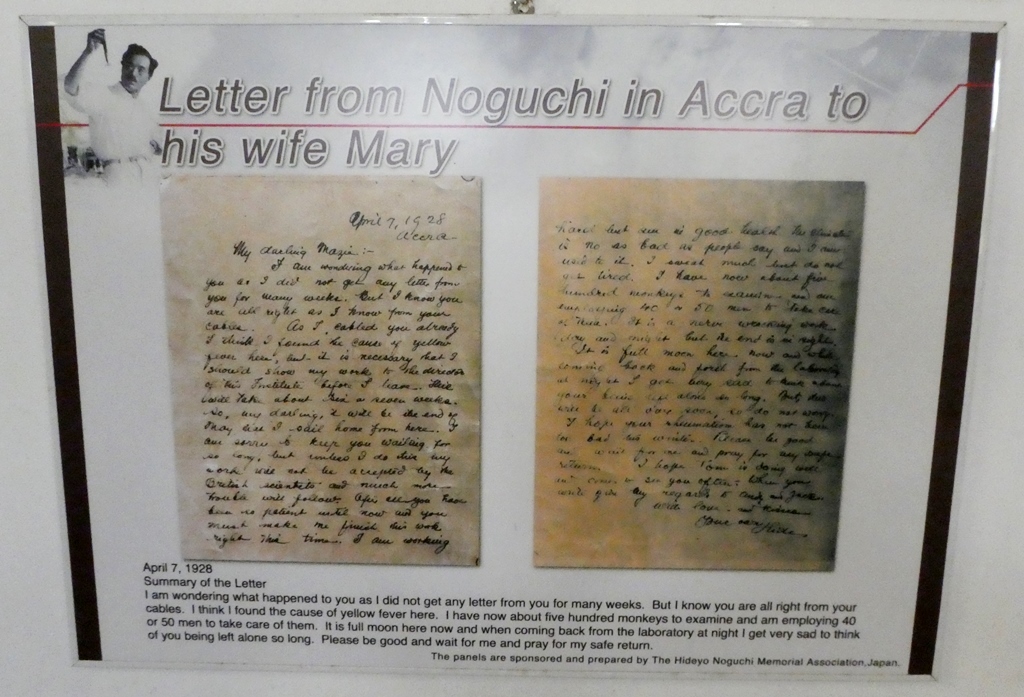 Letter from Noguchi in Accra to
his wife Mary
April 7, 1928
Accra
My darling Mazie :-
I am wondering what happened to
you as I did not get any letter from
you for many weeks. But I know you
are all right as I know from your
cables. As I cabled you already
I think I found the cause of yellow
fever here, but it is necessary that I
should show my work to the director
of this Institute before I leave. This
will take about six or seven weeks.
So, my darling, it will be the end of
May like I sail home from here. I
am sorry to keep you waiting for
so long, but unless I do this my
work will not be accepted by the
British scientists and much more
trouble will follow. After all you have
been so patient until now and you
must make me finish this work
right this time. I am working
hard but am in good health. The climate
is no as bad as people say and I am
used to it. I sweat much but do not
get tired. I have now about five
hundred monkeys to examine and am
employing 40 or 50 men to take care
of them. It is a nerve wracking work
day and night but the end is in sight.
It is full moon here now and when
coming back and forth from the laboratory
at night I get very sad to think about
your being left alone so long. But, this
will be all over soon, so do not worry.
I hope your rheumatism has not been
so bad this winter. Please be good
and wait for me and pray for my safe
return. I hope Tom is doing well
and comes to see you often. When you
write give my regards to
with love and kisses
April 7, 1928
Summary of the Letter
I am wondering what happened to you as I did not get any letter from you for many weeks. But I know you are all right from your
cables. I think I found the cause of yellow fever here. I have now about five hundred monkeys to examine and am employing 40
or 50 men to take care of them. It is full moon here now and when coming back from the laboratory at night I get very sad to think
of you being left alone so long. Please be good and wait for me and pray for my safe return.
The panels are sponsored and prepared by The Hideyo Noguchi Memorial Association, Japan.